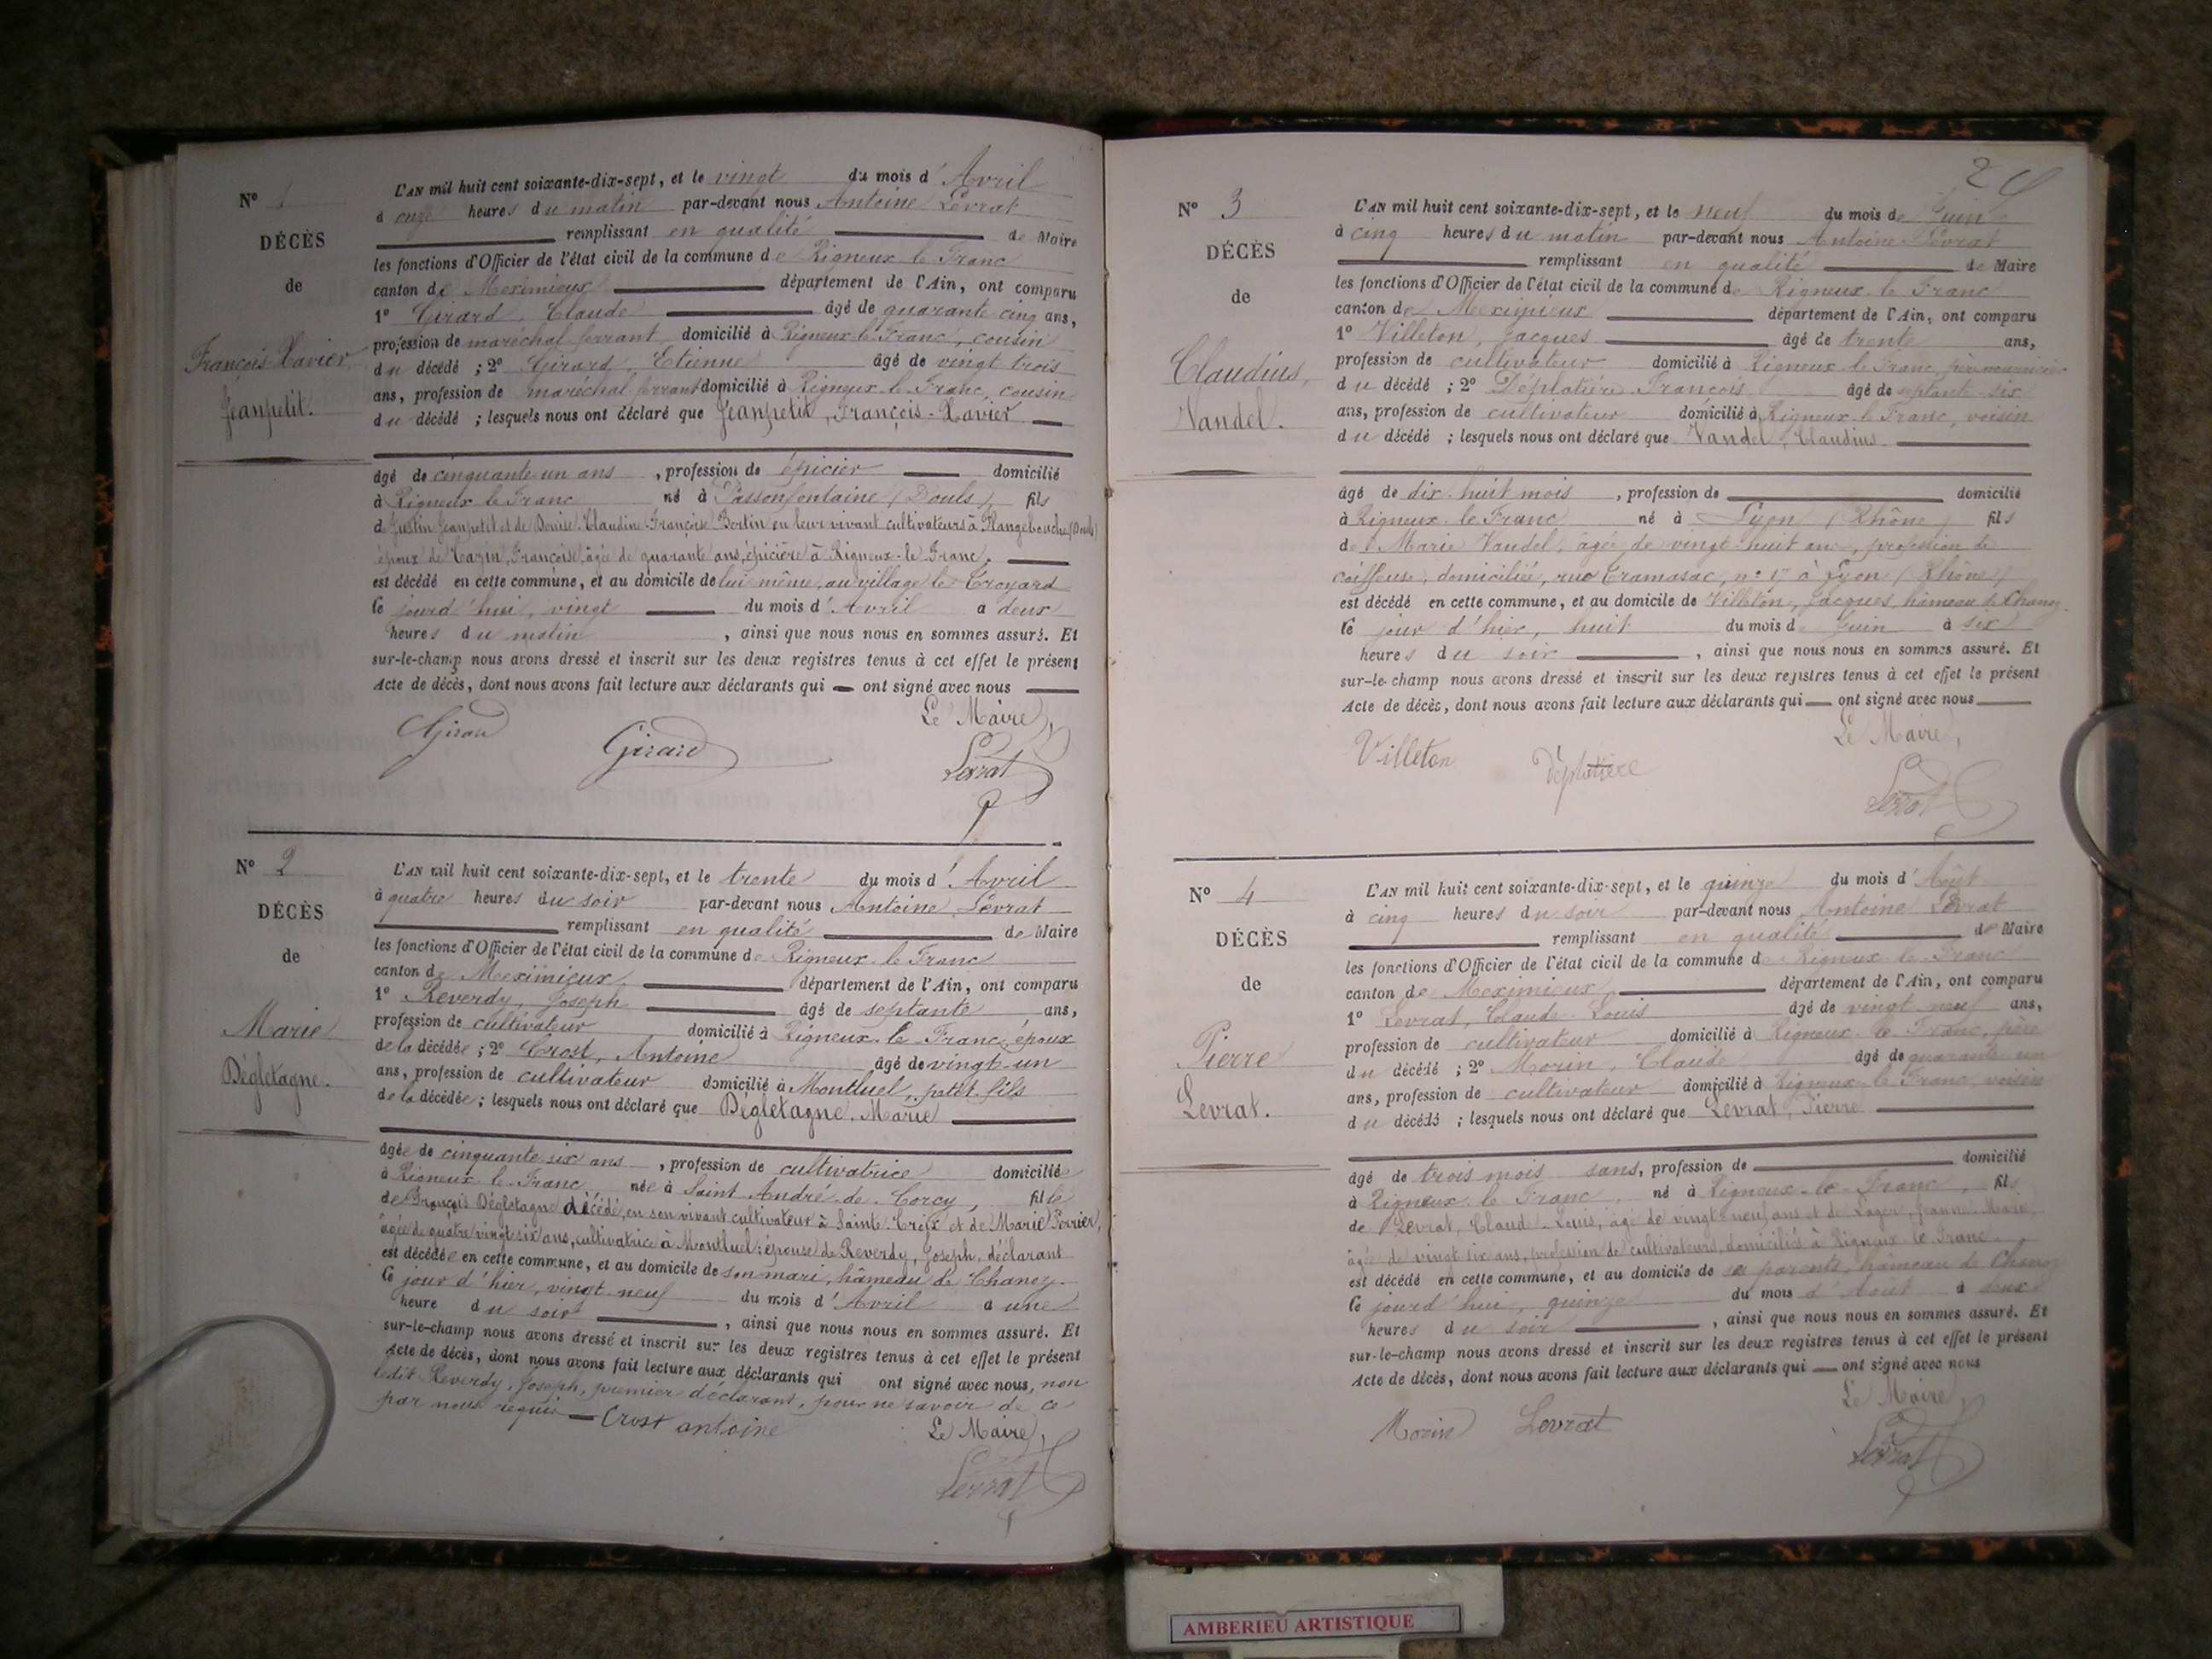 N° 1
DÉCÈS
de
François Xavier
Jeanpetit.
L'AN mil huit cent soixante-dix-sept, et le vingt du mois d'Avril
à onze heures du matin par-devant nous Antoine Levrat
remplissant en qualité de Maire
les fonctions d'Officier de l'état civil de la commune de Rigneux le Franc
canton de Meximieux département de l'Ain, ont comparu
1° Girard, Claude âgé de quarante cinq ans,
profession de maréchal ferrant domicilié à Rigneux le Franc, cousin
du décédé ; 2° Girard, Etienne âgé de vingt trois
ans, profession de maréchal ferrant domicilié à Rigneux le Franc, cousin
du décédé ; lesquels nous ont déclaré que Jeanpetit, François-Xavier
âgé de cinquante un ans, profession de épicier domicilié
à Rigneux le Franc né à Passonfontaine (Doubs), fils
de Justin Jeanpetit et de Denise-Claudine-Françoise Bertin en leur vivant cultivateurs à Flangebouche (Doubs)
époux de Cazin, Françoise, âgée de quarante ans, épicière à Rigneux-le-Franc.
est décédé en cette commune, et au domicile de lui même, au village le Croyard
le jourd'hui, vingt du mois d'Avril à deux
heures du matin, ainsi que nous nous en sommes assuré. Et
sur-le-champ nous avons dressé et inscrit sur les deux registres tenus à cet effet le présent
Acte de décès, dont nous avons fait lecture aux déclarants qui ont signé avec nous
Le Maire,
Girard Levrat
N° 2
DÉCÈS
de
Marie
Dégletagne.
L'AN mil huit cent soixante-dix-sept, et le trente du mois d'Avril
à quatre heures du soir par-devant nous Antoine Levrat
remplissant en qualité de Maire
les fonctions d'Officier de l'état civil de la commune de Rigneux le Franc
canton de Meximieux département de l'Ain, ont comparu
1° Reverdy, Joseph âgé de septante ans,
profession de cultivateur domicilié à Rigneux le Franc, époux
de la décédée ; 2° Crost, Antoine âgé de vingt un
ans, profession de cultivateur domicilié à Montluel, petit fils
de la décédée ; lesquels nous ont déclaré que Dégletagne Marie
âgée de cinquante six ans, profession de cultivatrice domiciliée
à Rigneux le Franc née à Saint André de Corcy, fille
de François Dégletagne décédé, en son vivant cultivateur à Sainte Croix et de Marie Perrier,
âgée de quatre vingt six ans, cultivatrice à Montluel ; épouse de Reverdy, Joseph, déclarant
est décédée en cette commune, et au domicile de son mari, hameau de Chanoz.
le jour d'hier, vingt neuf du mois d'Avril à une
heure du soir, ainsi que nous nous en sommes assuré. Et
sur-le-champ nous avons dressé et inscrit sur les deux registres tenus à cet effet le présent
Acte de décès, dont nous avons fait lecture aux déclarants qui ont signé avec nous, non
ledit Reverdy, Joseph, premier déclarant, pour ne savoir de ce
par nous requis Crost antoine
Le Maire,
Levrat
2
N° 3
DÉCÈS
de
Claudius,
Vandel.
L'AN mil huit cent soixante-dix-sept, et le neuf du mois de Juin
à cinq heures du matin par-devant nous Antoine Levrat
remplissant en qualité de Maire
les fonctions d'Officier de l'état civil de la commune de Rigneux le Franc
canton de Meximieux département de l'Ain, ont comparu
1° Villeton, Jacques âgé de trente ans,
profession de cultivateur domicilié à Rigneux le Franc, père nourricier
du décédé ; 2° Déplatière François âgé de septante six
ans, profession de cultivateur domicilié à Rigneux le Franc, voisin
du décédé ; lesquels nous ont déclaré que Vandel, Claudius
âgé de dix huit mois, profession de domicilié
à Rigneux le Franc né à Lyon (Rhône) fils
de Marie Vandel, âgée de vingt huit ans, profession de
coiffeuse, domiciliée, rue Tramassac, n° 17 à Lyon (Rhône)
est décédé en cette commune, et au domicile de Villeton, Jacques, hameau de Chanoz
le jour d'hier, huit du mois de Juin à six
heures du soir, ainsi que nous nous en sommes assuré. Et
sur-le-champ nous avons dressé et inscrit sur les deux registres tenus à cet effet le présent
Acte de décès, dont nous avons fait lecture aux déclarants qui ont signé avec nous
Le Maire,
Villeton Déplatière Levrat
N° 4
DÉCÈS
de
Pierre
Levrat.
L'AN mil huit cent soixante-dix-sept, et le quinze du mois d'Août
à cinq heures du soir par-devant nous Antoine Levrat
remplissant en qualité de Maire
les fonctions d'Officier de l'état civil de la commune de Rigneux le Franc
canton de Meximieux département de l'Ain, ont comparu
1° Levrat, Claude Louis âgé de vingt neuf ans,
profession de cultivateur domicilié à Rigneux le Franc, père
du décédé ; 2° Morin, Claude âgé de quarante un
ans, profession de cultivateur domicilié à Rigneux le Franc, voisin
du décédé ; lesquels nous ont déclaré que Levrat, Pierre
âgé de trois mois sans, profession de domicilié
à Rigneux le Franc, né à Rigneux-le-Franc, fils
de Levrat, Claude-Louis, âgé de vingt neuf ans et de Lager, Jeanne-Marie,
âgée de vingt six ans, profession de cultivateurs, domiciliés à Rigneux le Franc.
est décédé en cette commune, et au domicile de ses parents, hameau de Chanoz
le jourd'hui, quinze du mois d'Août à deux
heures du soir, ainsi que nous nous en sommes assuré. Et
sur-le-champ nous avons dressé et inscrit sur les deux registres tenus à cet effet le présent
Acte de décès, dont nous avons fait lecture aux déclarants qui ont signé avec nous
Le Maire,
Morin Levrat Levrat
AMBERIEU ARTISTIQUE